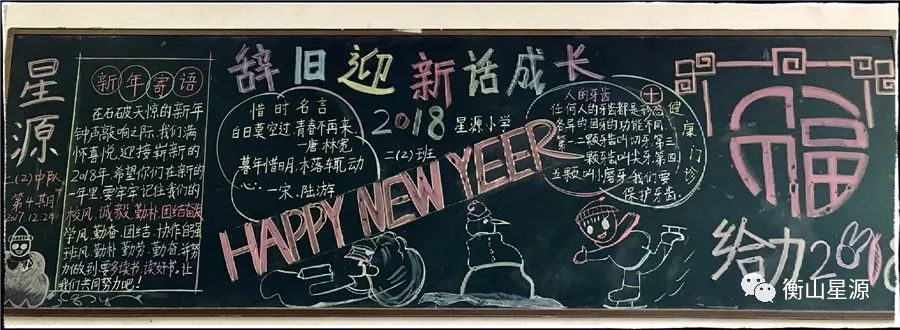 星源
二(2)中队
第4期
2017.12.24
新年寄语
在石破天惊的新年
钟声敲响之际,我们满
怀喜悦,迎接崭新的
2018年,希望你们在新的
一年里,要牢牢记住我们的
校风,诚毅 勤朴 团结奋发
学风,勤奋 团结 协作 自强
班风,勤朴 勤劳 勤奋,并努
力做到要多读书,读好书,让
我们共同努力吧!
辞旧迎新话成长
惜时名言
白日莫空过,青春不再来.
—唐.林宽
暮年惜明,木落车轧动
心.—宋.陆游
2018 星源小学
二(2)班
HAPPY NEW YEER
人的牙齿
任何人的牙齿都是形态
各异的
的功能不同,
第一二颗牙齿叫切牙,第三
颗牙齿叫尖牙,第四
五颗叫小磨牙,我们要
保护牙齿.
健康门诊
福
给力2018
衡山星源